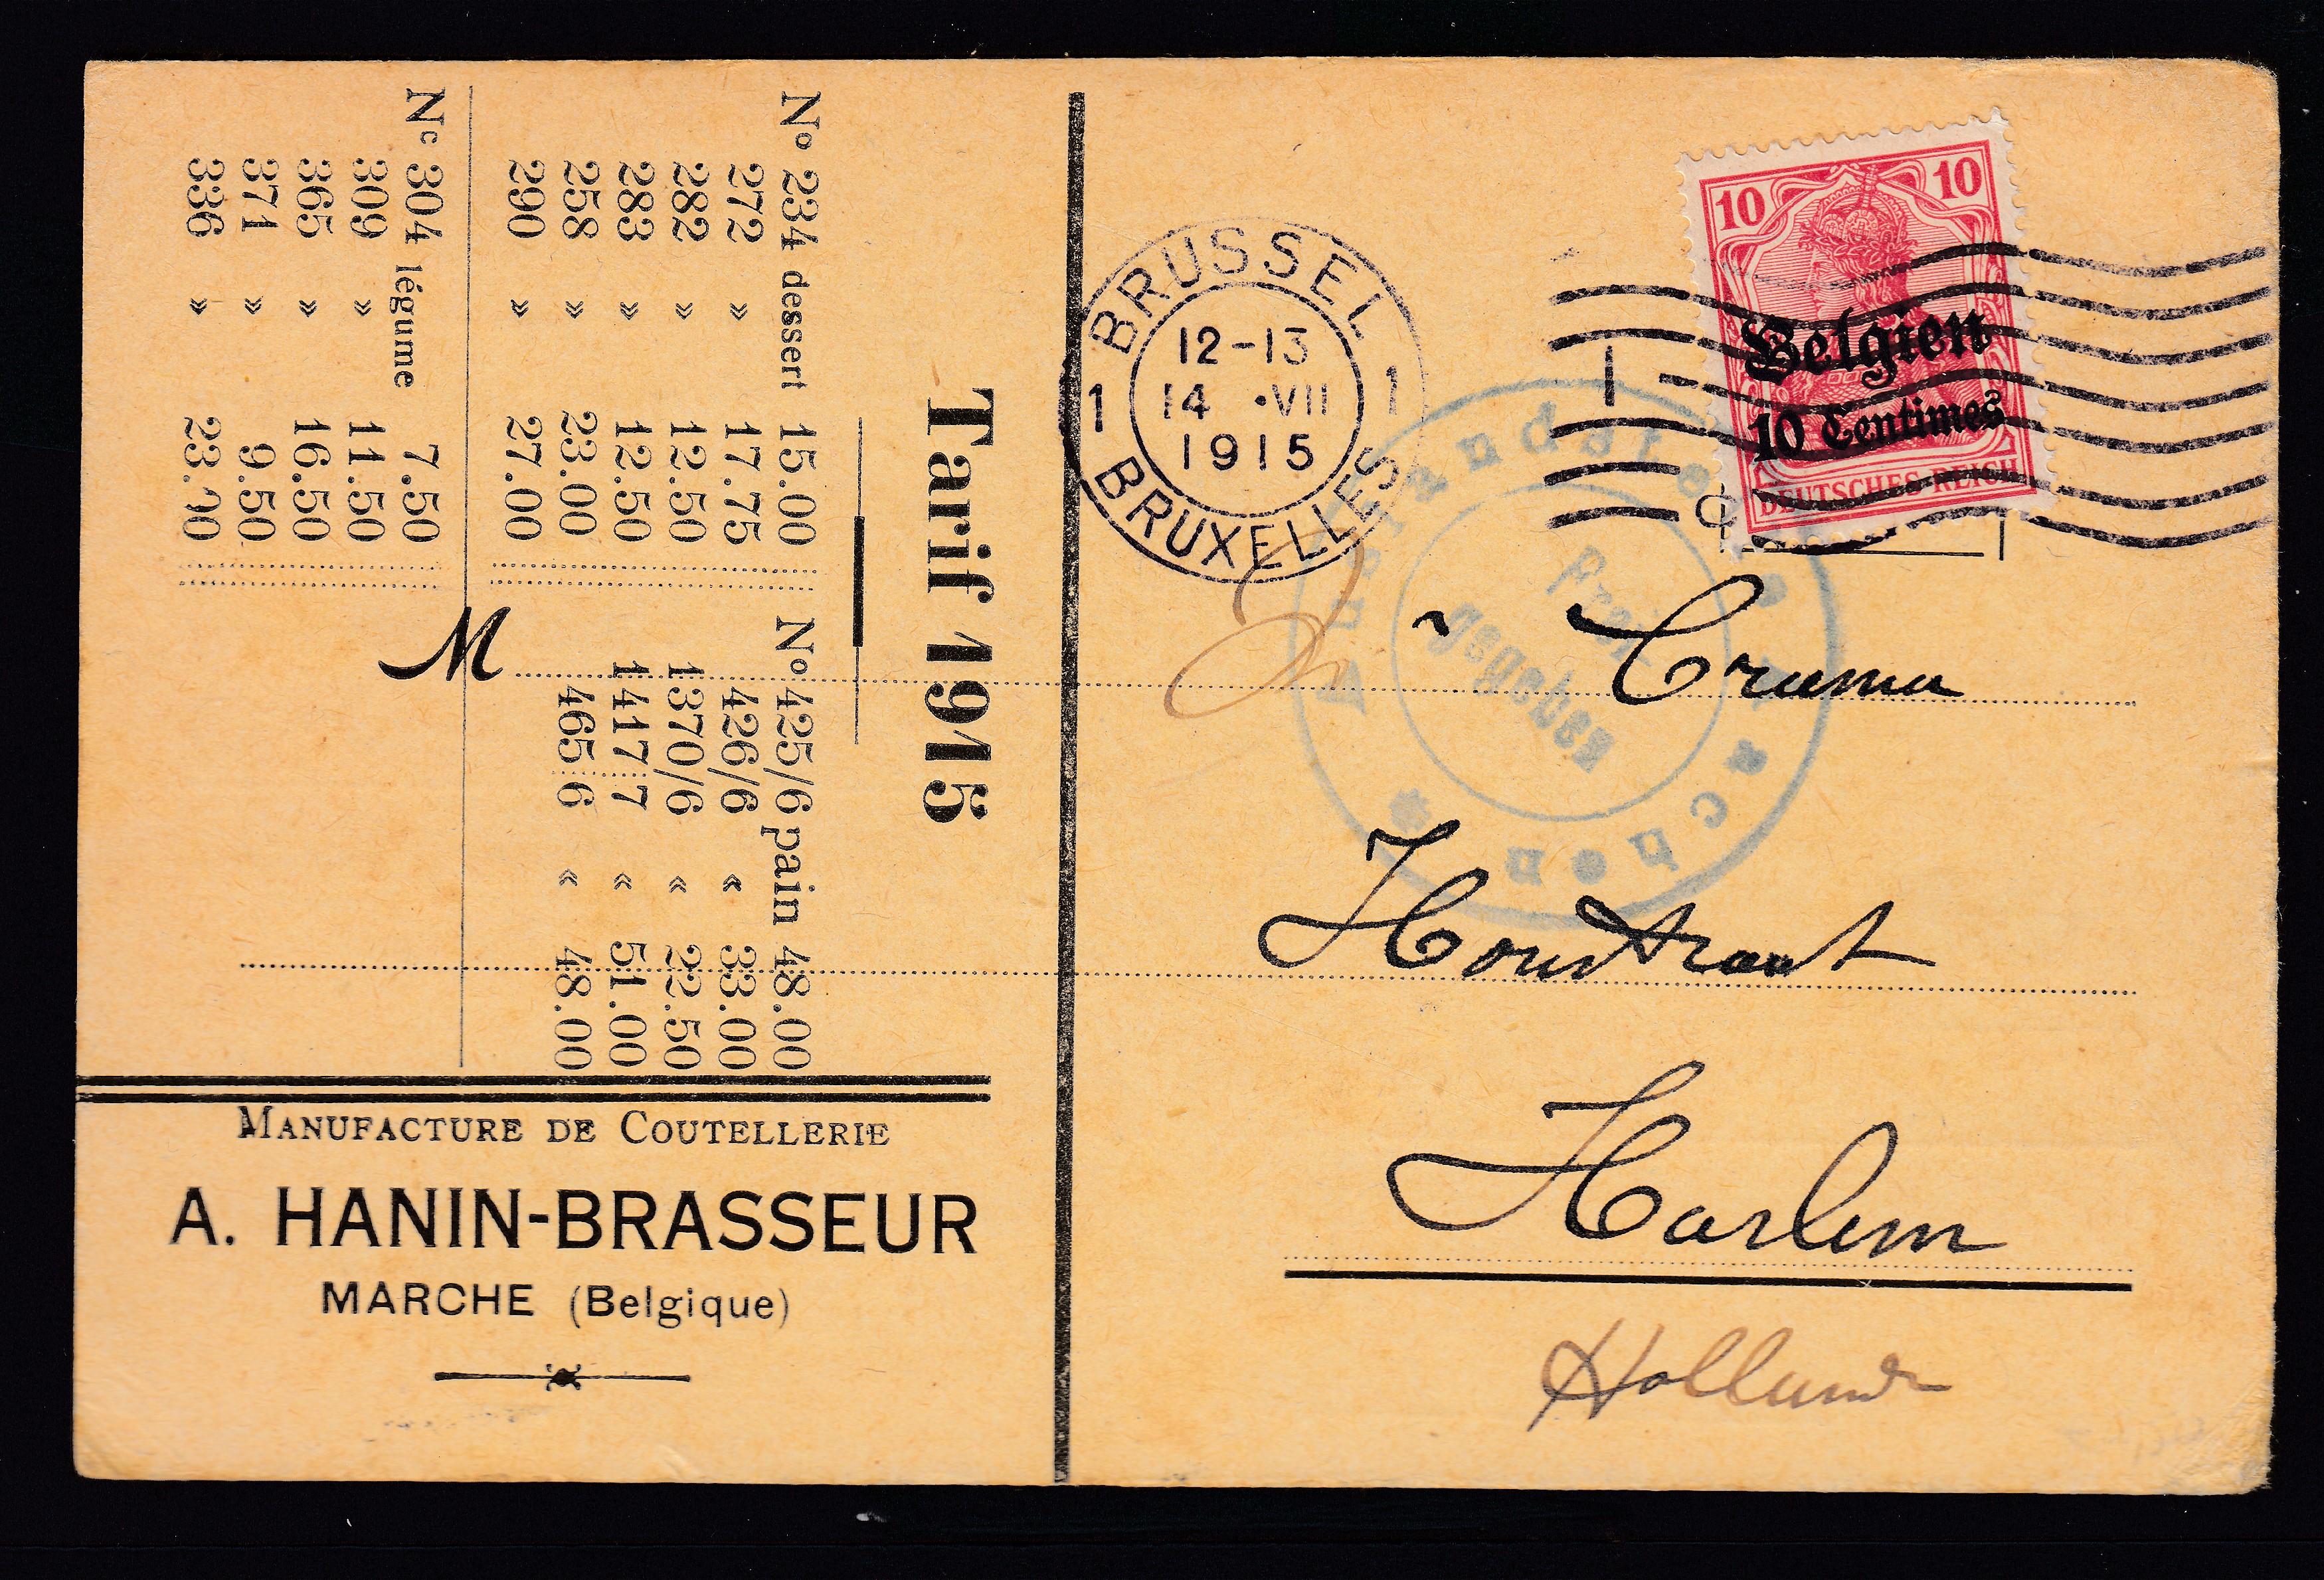 Tarif 1915
Nº 234 dessert 15.00
272 » 17.75
282 » 12.50
283 » 12.50
258 » 23.00
290 » 27.00
Nº 425/6 pain 48.00
426/6 « 33.00
1370/6 « 22.50
1417 7 « 51.00
465 6 « 48.00
Nº 304 légume 7.50
309 » 11.50
365 » 16.50
371 » 9.50
336 » 23.00
M
MANUFACTURE DE COUTELLERIE
A. HANIN-BRASSEUR
MARCHE (Belgique)
1 BRUSSEL 1
12-13
14 •VII
1915
BRUXELLES
10 10
Belgien
10 Centimes
DEUTSCHES REICH
Auslandstelle Aachen
Frei
gegeben
Houtstraat
Harlem
Holland